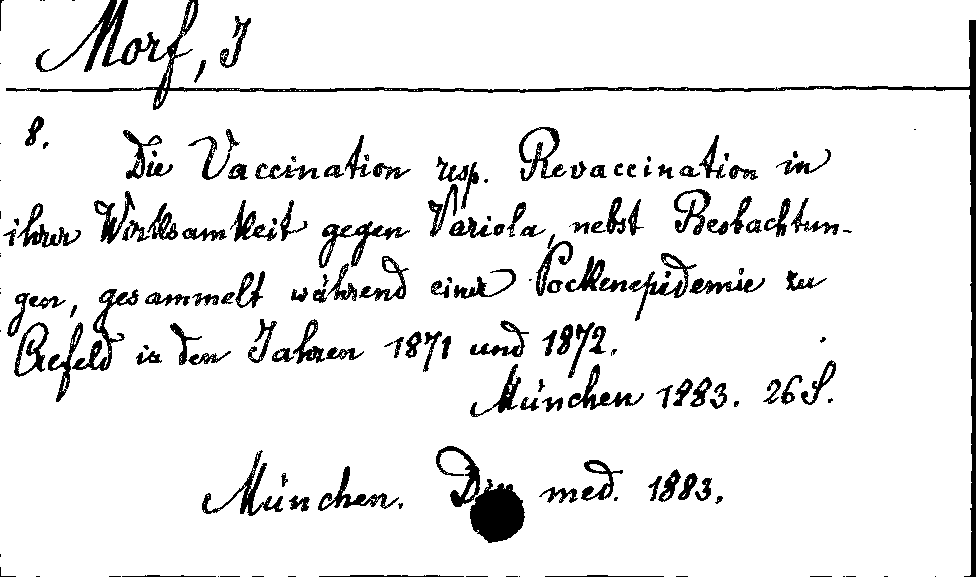 Morf, J
8.
Die Vaccination resp. Revaccination in
ihrer Wirksamkeit gegen Variola, nebst Beobachtun-
gen, gesammelt während einer Pockenepidemie zu
Crefeld in den Jahren 1871 und 1872.
München 1883. 26 S.
München. med. 1883.